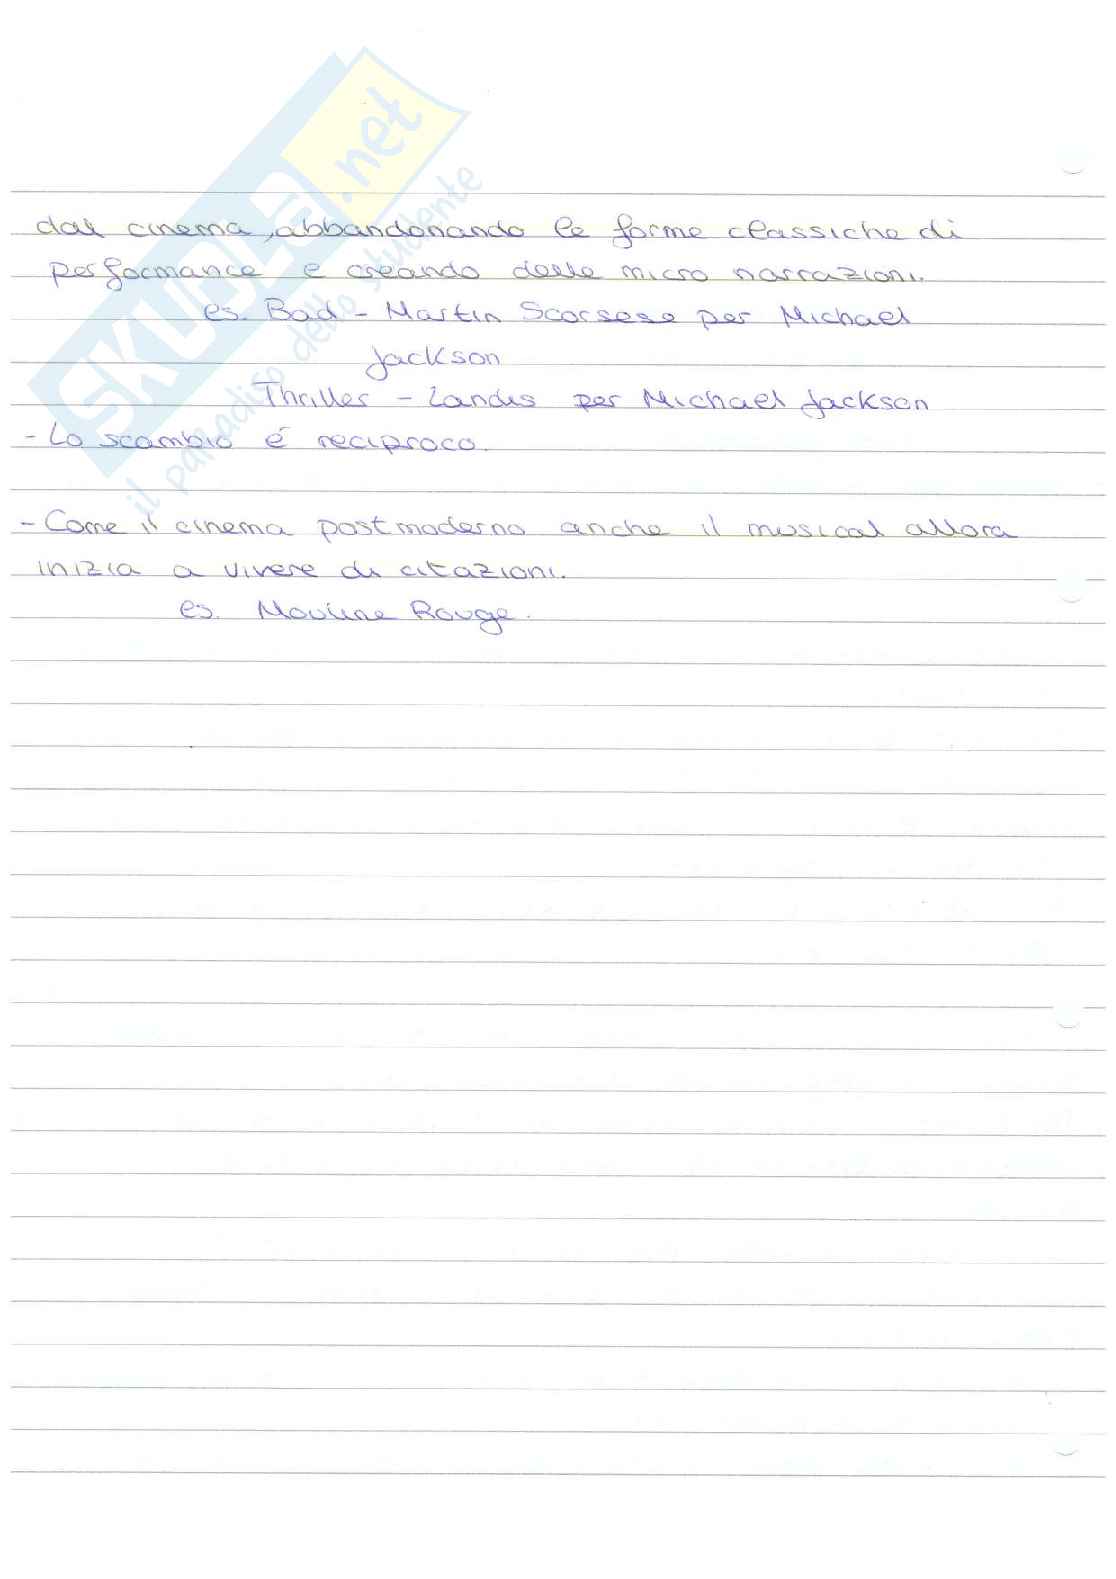 SKUOLA.net
il paradiso dello studente
dal cinema, abbandonando le forme classiche di
performance e creando delle micro narrazioni.
es. Bad - Martin Scorsese per Michael
Jackson
Thriller - Landis per Michael Jackson
- Lo scambio é reciproco.
- Come il cinema postmoderno anche il musical allora
inizia a vivere di citazioni.
es. Mouline Rouge.